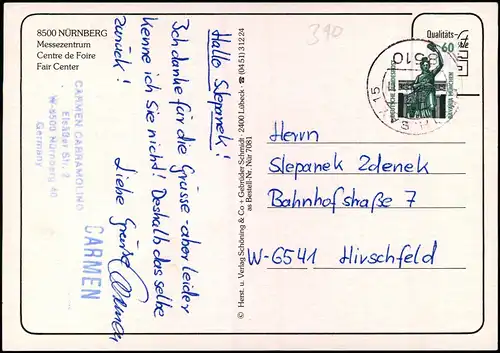 8500 NÜRNBERG
Messezentrum
Centre de Foire
Fair Center
Hallo Slepanek!
Ich danke für die Grüsse - aber leider
kenne ich Sie nicht! Deshalb das selbe
zurück! Liebe Grüsse Carmen
CARMEN GABRAMOLINO
W-8500 Nürnberg 40
Germany
CARMEN
© Herst. u. Verlag Schöning & Co + Gebrüder Schmidt · 2400 Lübeck · ☎ (0451) 31224
as Bestell-Nr.: Nür 7081
390
Qualitäts-
60
Herrn
Slepanek Zdenek
Bahnhofstraße 7
W-6541 Hirschfeld